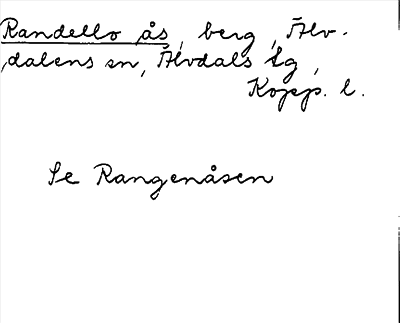 Randello ås, berg, Älv-
dalens sn, Älvdals tg,
Kopp. l.
Se Rangenåsen